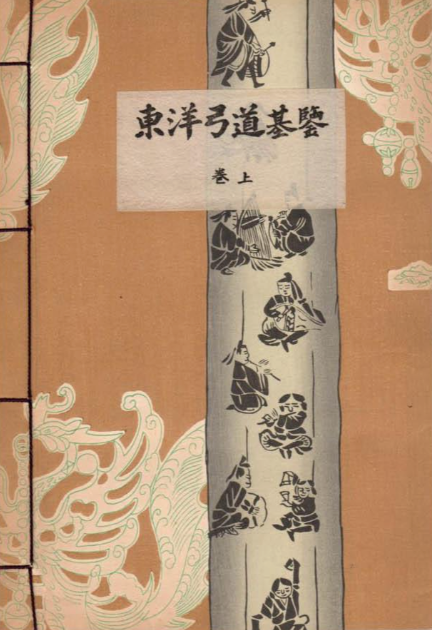 東洋弓道基鑒
巻上